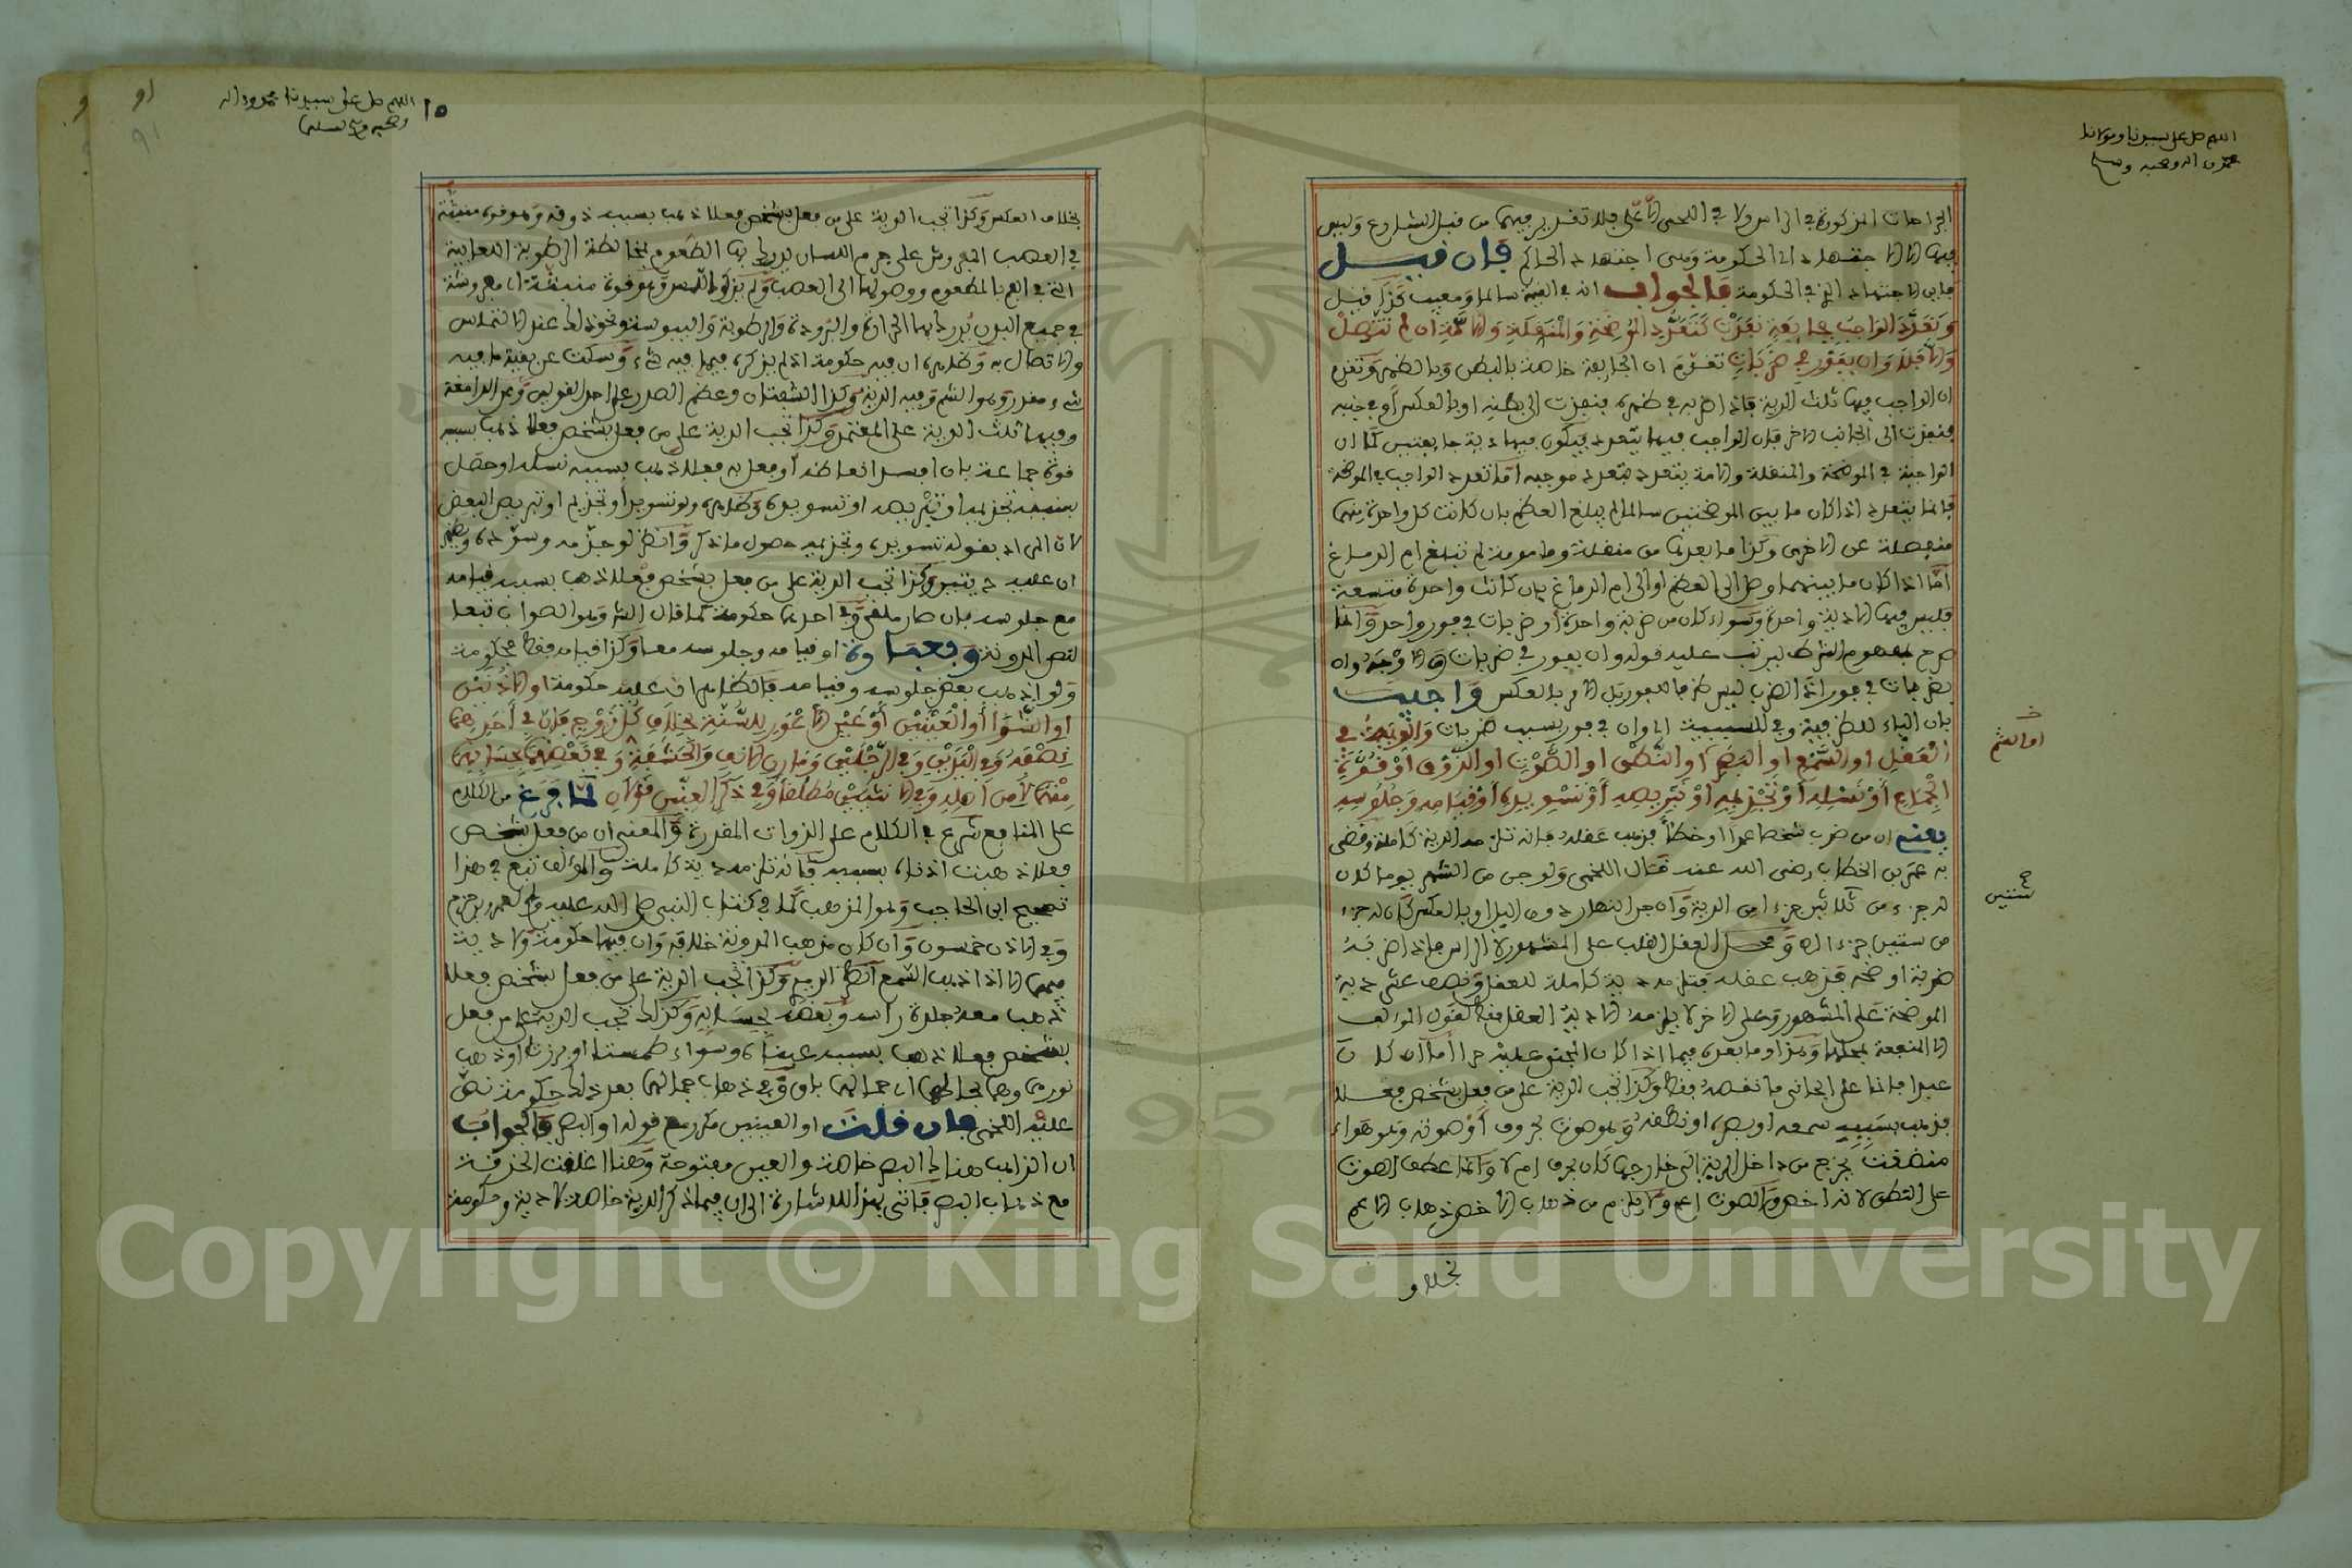 اللهم صل على سيدنا ومولانا
محمد وآله وصحبه وسلم
الجراحات المذكورة في الراس ولا في اللحى الأعلى فلا تقدير فيها من قبل الشارع وليس
فيها إلا الاجتهاد أي الحكومة فإن قيل
فالجواب
وتعدد الواجب بجائفة نفذت كتعدد الموضحة والمنقلة والآمة إن لم تتصل
وإلا فلا وإن بفور في ضربات تقدم أن الجائفة خاصة بالبطن وبالظهر وتقدم
أن الواجب فيها ثلث الدية فإذا ضربه في ظهره فنفذت إلى بطنه أو بالعكس أو في جنبه
فنفذت إلى الجانب الآخر فإن الواجب فيها يتعدد فيكون فيها دية جائفتين كما أن
الواجب في الموضحة والمنقلة والآمة يتعدد بتعدد موجبه أما تعدد الواجب في الموضحة
فإنما يتعدد إذا كان ما بين الموضحتين سالما لم يبلغ العظم بأن كانت كل واحدة منهما
منفصلة عن الأخرى وكذا ما بعدها من منقلة ومأمومة لم تبلغ أم الدماغ
أما إذا كان ما بينهما وصل إلى العظم أو إلى أم الدماغ بأن كانت واحدة متسعة
فليس فيها إلا دية واحدة وسواء كان من ضربة واحدة أو ضربات في فور واحد وإنما
صرح بمفهوم الشرط ليرتب عليه قوله وإن بفور في ضربات
بضربات في فور إذ الضرب ليس ظرفا للفور بل الأمر بالعكس وأجيب
بأن الباء للظرفية وفي للسببية أي وإن في فور بسبب ضربات والدية في
العقل أو السمع أو البصر أو النطق أو الصوت أو الذوق أو قوة
الجماع أو نسله أو تجذيمه أو تبريصه أو تسويده أو قيامه وجلوسه
يعني أن من ضرب شخصا عمدا أو خطأ فذهب عقله فإنه تلزمه الدية كاملة وقضى
به عمر بن الخطاب رضي الله عنه قال اللخمي ولو جن من الشهر يوما كان
له جزء من ثلاثين جزءا من الدية وإن جن النهار دون الليل أو بالعكس كان له جزء
من ستين جزءا ومحل العقل القلب على المشهور لا الراس فإذا ضربه
ضربة أوضحه فذهب عقله فتلزمه دية كاملة للعقل ونصف عشر دية
الموضحة على المشهور وعلى الآخر لا يلزمه إلا دية العقل فقط لقول المؤلف
إلا المنفعة بمحلها وهذا وما بعده فيما إذا كان المجني عليه حرا أما إن كان
عبدا فإنما على الجاني ما نقصه فقط وكذا تجب الدية على من فعل بشخص فعلا
فذهب بسببه سمعه أو بصره أو نطقه وهو صوت بحروف أو صوته وهو هواء
منضغت يخرج من داخل الرية إلى خارجها كان بحرف أم لا وإنما عطف الصوت
على النطق لأنه أخص والصوت أعم ولا يلزم من ذهاب الأخص ذهاب الأعم
أو الشم
ستين
بخلاف
١٥
٩١
اللهم صل على سيدنا محمد وآله
وصحبه وسلم تسليما
بخلاف العكس وكذا تجب الدية على من فعل بشخص فعلا ذهب بسببه ذوقه وهو قوة منبثة
في العصب المفروش على جرم اللسان يدرك بها الطعوم بمخالطة الرطوبة اللعابية
التي في الفم بالمطعوم ووصولها إلى العصب ولم يذكر اللمس وهو قوة منبثة
في جميع البدن يدرك بها الحرارة والبرودة والرطوبة واليبوسة ونحو ذلك عند التماس
والاتصال به وظاهره أن فيه حكومة إذ لم يذكره فيما فيه شيء وسكت عن بقية ما فيه
شيء مقدر وهو الشم وفيه الدية وكذا الشفتان وعظم الصدر على أحد القولين وعن الدامغة
وفيها ثلث الدية على المعتمد وكذا تجب الدية على من فعل بشخص فعلا ذهب بسببه
قوة جماعه بأن أفسد إنعاظه أو فعل به فعلا ذهب بسببه نسله أو حصل
بسببه تجذيمه أو تبريصه أو تسويده وظاهره ولو تسويد أو تجذيم أو تبريص البعض
لأن المراد بقوله تسويده وتجذيمه حصول ما ذكر وانظر لو جذمه وسوده
أن عليه ديتين وكذا تجب الدية على من فعل بشخص فعلا ذهب بسببه قيامه
مع جلوسه بأن صار ملقى وفي أحدهما حكومة كما قال الشر وهو الصواب تبعا
لنص المدونة أو قيامه وجلوسه معا وكذا قيامه فقط حكومة
ولو أذهب بعض جلوسه وقيامه فالظاهر أن عليه حكومة أو الأذنين
أو الشوا أو العينين أو عين الأعور للسنة بخلاف كل زوج فإن في أحدهما
نصفه وفي اليدين وفي الرجلين ومارن الأنف والحشفة وفي بعضهما بحسابها
منهما لا من أصله وفي الأنثيين مطلقا وفي ذكر العنين قولان لما فرغ من الكلام
على المنافع شرع في الكلام على الذوات المقدرة والمعنى أن من فعل بشخص
فعلا ذهبت أذناه بسببه فإنه تلزمه دية كاملة والمؤلف تبع في هذا
تصحيح ابن الحاجب وهو المذهب كما في كتاب النبي صلى الله عليه وسلم لعمرو بن حزم
وفي الأذن خمسون وإن كان مذهب المدونة خلافه وأن فيها حكومة ولا دية
فيهما إلا إذا ذهب السمع انظر الربع وكذا تجب الدية على من فعل بشخص فعلا
ذهب معه جلدة رأسه وبعضها بحسابه وكذلك تجب الدية على من فعل
بشخص فعلا ذهب بسببه عيناه وسواء طمستا أو برزتا أو ذهب
نورهما وهما بحالهما أي جمالهما باق وفي ذهاب جمالهما بعد ذلك حكومة نص
عليه اللخمي فإن قلت أو العينين مكرر مع قوله أو البصر فالجواب
أن الذاهب هنالك البصر خاصة والعين مفتوحة وهنا أغلقت الحدقة
مع ذهاب البصر فأتى بهذا للإشارة إلى أن فيما ذكر الدية خاصة لا دية وحكومة